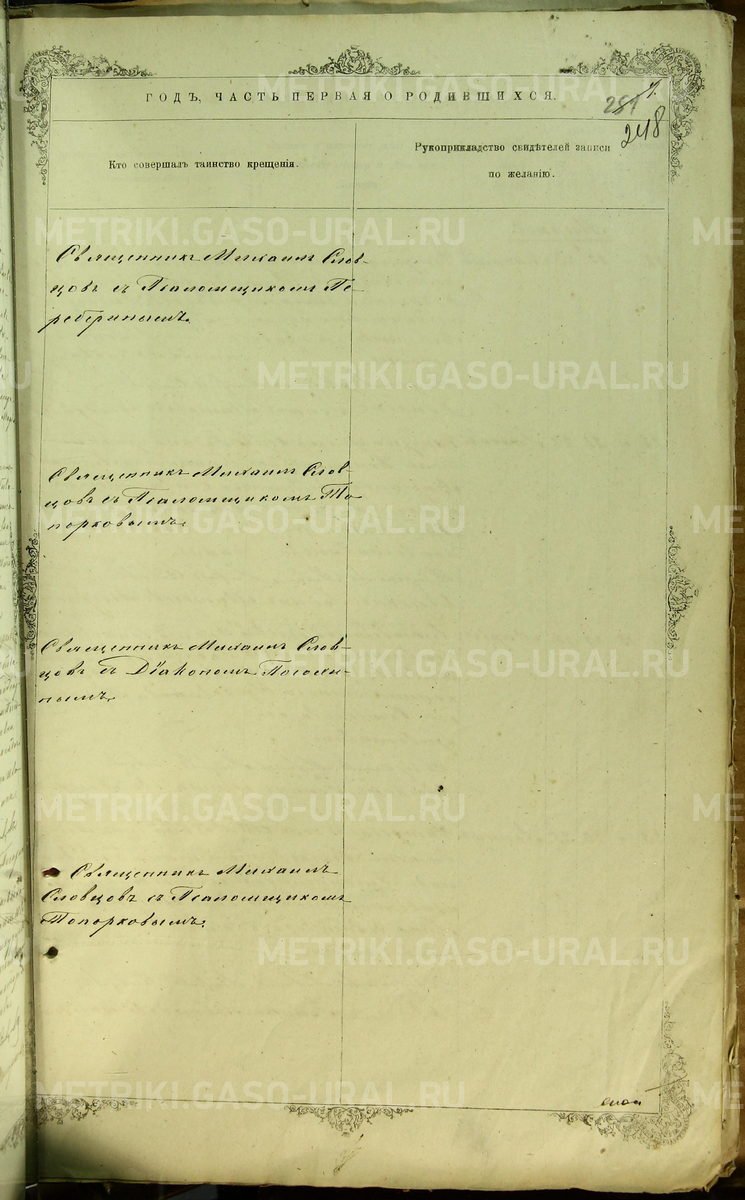 ГОДЪ, ЧАСТЬ ПЕРВАЯ О РОДИВШИХСЯ.
281
248
Кто совершалъ таинство крещенія.
Рукоприкладство свидѣтелей записи
по желанію.
Священникъ Михаилъ Слов-
цовъ съ Псаломщикомъ Пе-
ребериным.
Священникъ Михаилъ Слов-
цовъ съ Псаломщикомъ То-
порковымъ.
Священникъ Михаилъ Слов-
цовъ съ Діакономъ
Священникъ Михаилъ
Словцовъ съ Псаломщикомъ
Топорковымъ.
METRIKI.GASO-URAL.RU